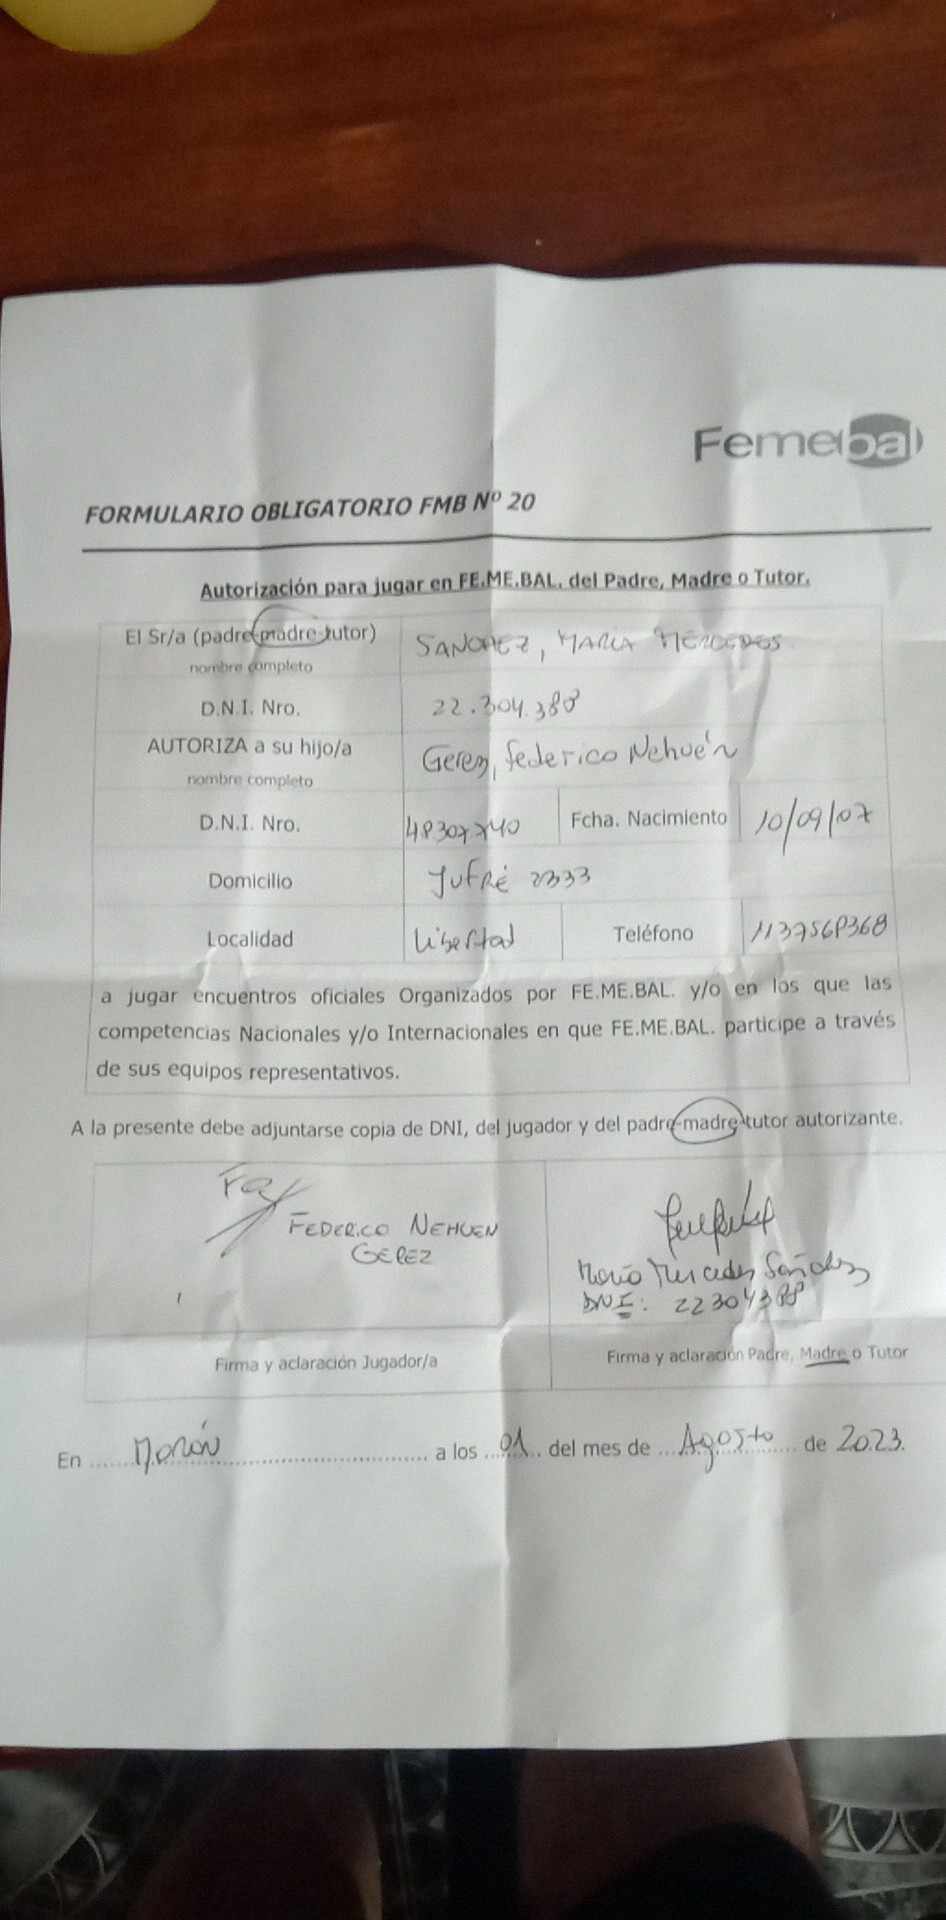 Femebal
FORMULARIO OBLIGATORIO FMB Nº 20
Autorización para jugar en FE.ME.BAL. del Padre, Madre o Tutor.
El Sr/a (padre-madre-tutor) SANCHEZ, MARIA MERCEDES
nombre completo
D.N.I. Nro. 22.304.388
AUTORIZA a su hijo/a Gerez, Federico Nehuén
nombre completo
D.N.I. Nro. 48307740 Fcha. Nacimiento 10/09/07
Domicilio Jufré 2333
Localidad Libertad Teléfono 1137568368
a jugar encuentros oficiales Organizados por FE.ME.BAL. y/o en los que las
competencias Nacionales y/o Internacionales en que FE.ME.BAL. participe a través
de sus equipos representativos.
A la presente debe adjuntarse copia de DNI, del jugador y del padre-madre-tutor autorizante.
FEDERICO NEHUEN
GEREZ
María Mercedes Sánchez
DNI: 22304388
Firma y aclaración Jugador/a
Firma y aclaración Padre, Madre o Tutor
En Morón a los 01 del mes de Agosto de 2023.